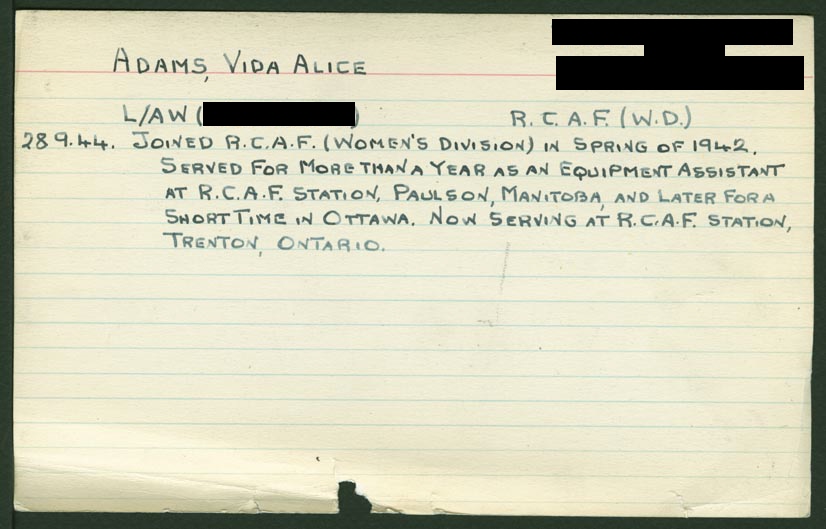 ADAMS, VIDA ALICE
L/AW ( ) R.C.A.F. (W.D.)
289.44. JOINED R.C.A.F. (WOMEN'S DIVISION) IN SPRING OF 1942.
SERVED FOR MORE THAN A YEAR AS AN EQUIPMENT ASSISTANT
AT R.C.A.F. STATION, PAULSON, MANITOBA, AND LATER FOR A
SHORT TIME IN OTTAWA. NOW SERVING AT R.C.A.F. STATION,
TRENTON, ONTARIO.